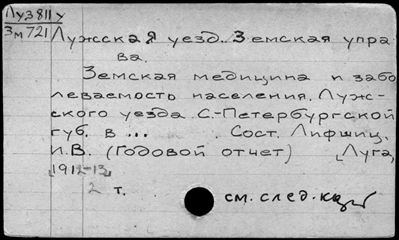 Лу3811у
Зм721
Лужская уезд. Земская упра
ва.
Земская медицина и забо
леваемость населения. Луж-
ского уезда С.-Петербургской
губ. в ... . Сост. Лифшиц,
И.В. (Годовой отчет) Луга,
1912-13
2 т.
см. след.